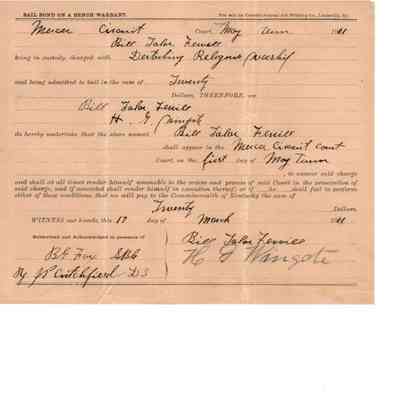 BAIL BOND ON A BENCH WARRANT.
Mercer Circuit Court, May
Bill Talor Ferrill
being in custody, charged with Desturbing Religous Worship
and being admitted to bail in the sum of Twenty
Dollars, THEREFORE, we
Bill Talor Ferrill
H. Wingate
do hereby undertake that the above named Bill Talor Ferrill
shall appear in the Mercer Circuit Court
Court, on the first day of May Term
, to answer said charge
and shall at all times render himself amenable to the orders and process of said Court in the prosecution of
said charge, and if convicted shall render himself in execution thereof; or if he shall fail to perform
either of these conditions, that we will pay to the Commonwealth of Kentucky the sum of
Twenty Dollars.
WITNESS our hands, this 17 day of March
Subscribed and Acknowledged in presence of
Bill Talor Ferrill
B.F. Fox
H Wingate
By Critchfield D.S